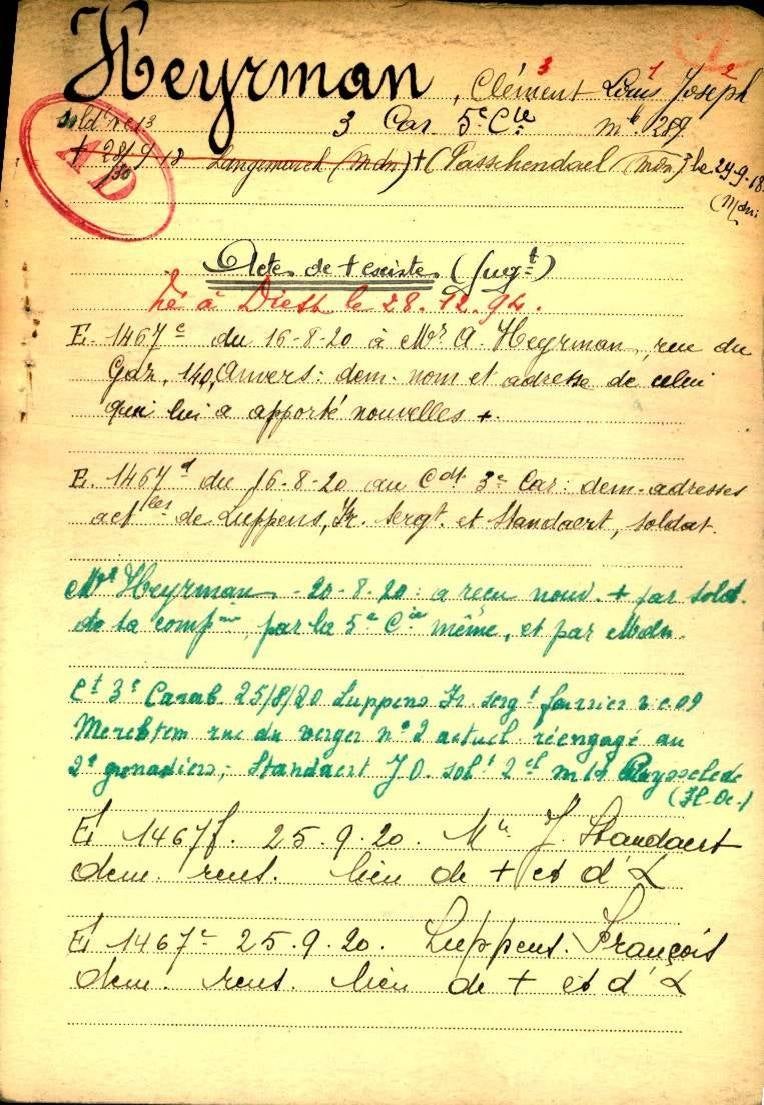 Heyrman, Clément 3 Louis 1 Joseph 2
sold 3 Car. 5e Cie m1e 289
+ 28/30 9 18 Langemarck (mdn) + (Passchendael (mdn) le 29-9-18
(Mdn)
AD
Acte de + existe (jugt)
né à Diest le 28.12.94.
E. 1467c du 16-8-20 à Mr A. Heyrman, rue du
Gaz, 140, Anvers: dem. nom et adresse de celui
qui lui a apporté nouvelles +.
E. 1467d du 16-8-20 au Cdt 3e Car: dem. adresses
actles de Luppens, Fr. sergt. et Standaert, soldat.
Mr Heyrman - 20-8-20: a reçu nouv. + par sold.
de la comp, par la 5e Cie même, et par Mdn.
Ct 3e Carab 25/8/20 Luppens Fr. sergt fourrier
Merchtem rue du verger n° 2 actuel. réengagé au
2e grenadiers; Standaert J.O. solt 2 cl m 14 Ruysselede
(Fl. Oc.)
E 1467f. 25.9.20. Mr J. Standaert
dem. rens. lieu de + et d'
E 1467e 25.9.20. Luppens François
dem. rens. lieu de + et d'